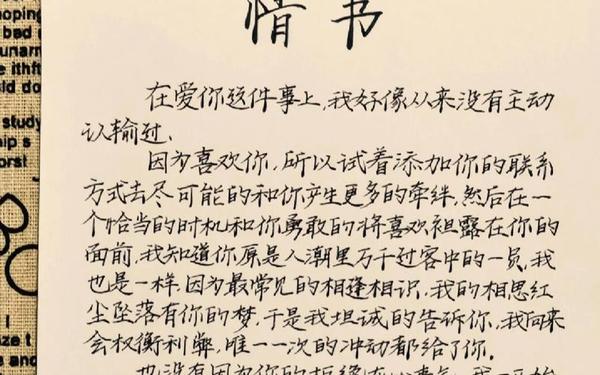 情书
在爱你这件事上,我好像从来没有主动
认输过、
因为喜欢你,所以试着添加你的联系
方式去尽可能的和你产生更多的牵绊,然后在一
个恰当的时机和你勇敢的将喜欢袒露在你的
面前,我知道你原是人潮里万千过客中的一员,我
也是一样,因为最常见的相逢相识,我的相思红
尘坠落有你的梦,于是我坦诚的告诉你,我向来
会权衡利弊,唯一一次的冲动都给了你。
也没有因为你的拒绝
hoping
bad
study
and